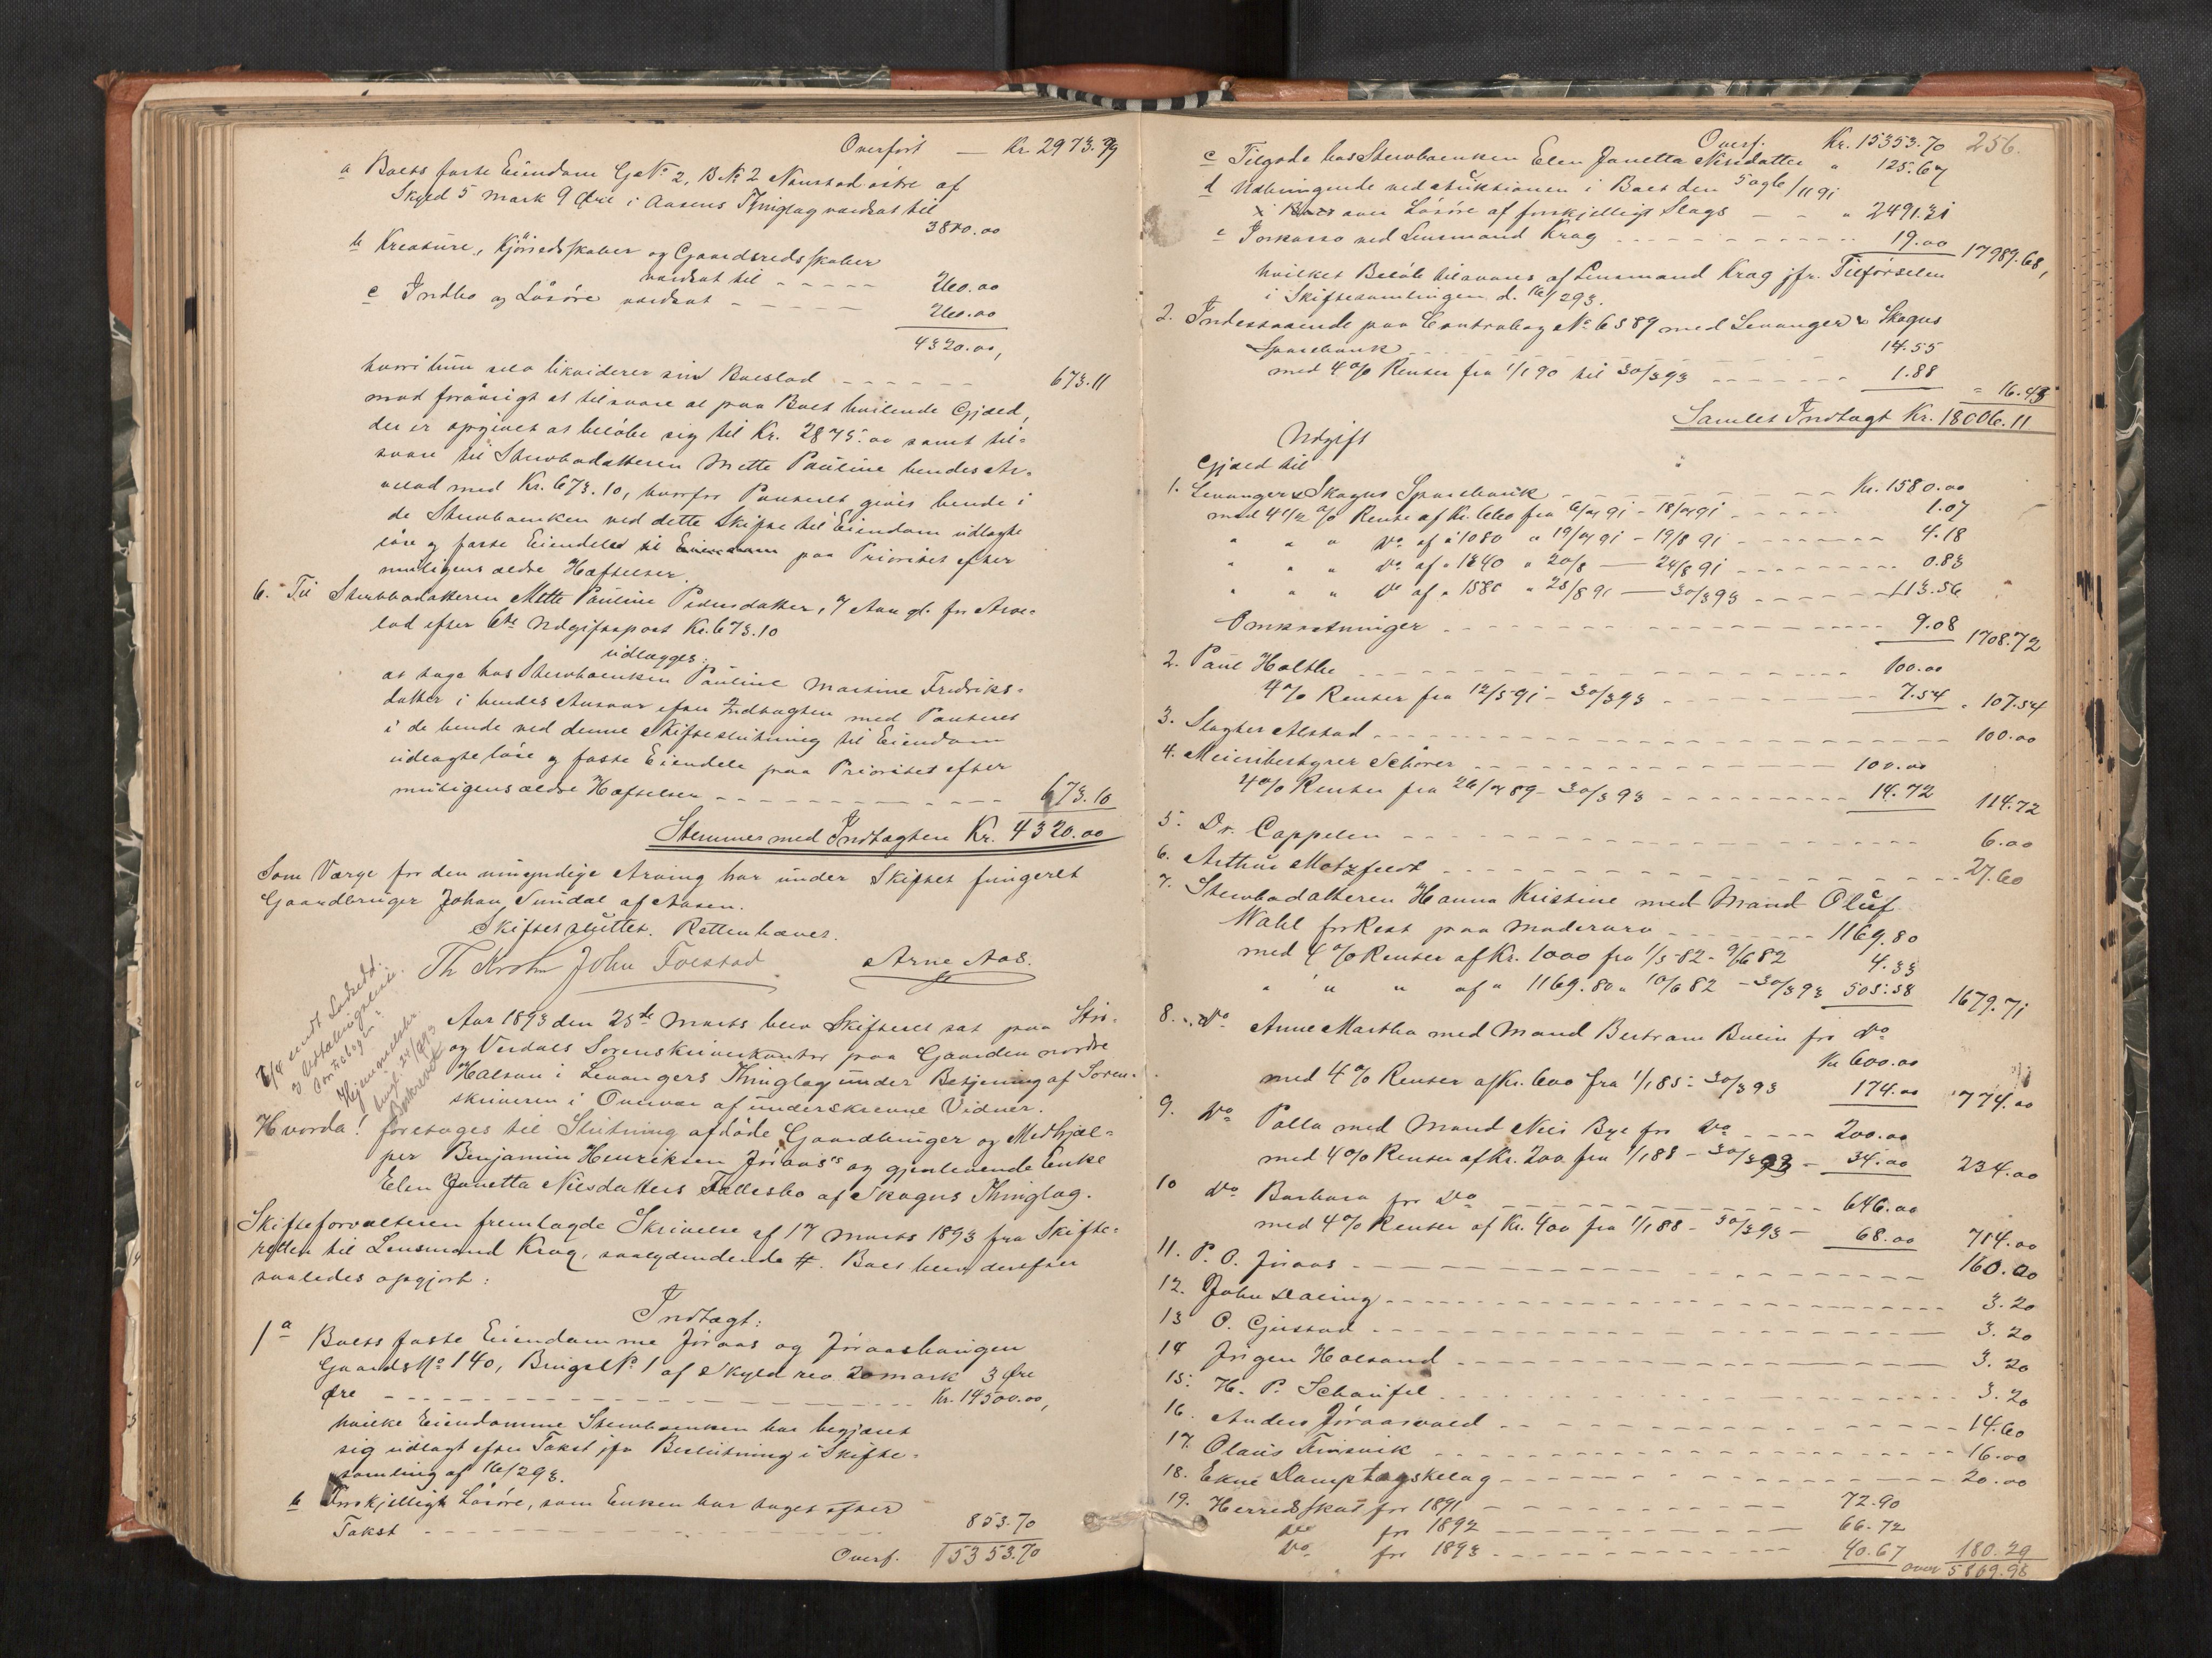 Overført — Kr. 2973.79
a Boets faste Eiendom G.No 2, B.No 2 Naustad østre af
Skyld 5 Mark 9 Øre i Aasens Thinglag vurderet til
3800.00
b Kreature, Kjøreredskaber og Gaardsredskaber
vurderet til - - - - - 260.00
c Indbo og Løsøre vurderet - - - 260.00
4320.00,
hvori hun selv likviderer sin Boeslod - - - - - - 673.11
mod forøvrigt at tilsvare al paa Boet hvilende Gjæld,
der er opgivet at beløbe sig til Kr. 2875.00 samt til-
svare til Stervbodatteren Mette Pauline hendes Ar-
velod med Kr. 673.10, hvorfor Panteret gives hende i
de Stervboenken ved dette Skifte til Eiendom udlagte
løse og faste Eiendele paa Prioritet efter
muligens ældre Hæftelser.
6. Til Stervbodatteren Mette Pauline Pedersdatter, 7 Aar gl. for Arve-
lod efter 6te Udgiftspost Kr. 673.10
udlægges:
at tage hos Stervboenken Pauline Martine Fredriks-
datter i hendes Ansvar efter Indtægten med Panteret
i de hende ved denne Skifteslutning til Eiendom
udlagte løse og faste Eiendele paa Prioritet efter
muligens ældre Hæftelser - - - - - - - 673.10
Stemmer med Indtægten Kr. 4320.00
Som Værge for den umyndige Arving har under Skiftet fungeret
Gaardbruger Johan Sundal af Aasen.
Skiftet sluttet. Retten hævet.
Th Krohn John Foestad Arne Aas.
Aar 1893 den 25de Marts blev Skifteret sat paa Stør-
og Værdals Sorenskriverkontor paa Gaarden nordre
Halsan i Levangers Thinglag under Betjening af Soren-
skriveren i Overvær af underskrevne Vidner.
Hvorda! foretoges til Slutning afdøde Gaardbruger og Medhjæl-
per Benjamin Henriksen Jøraas's og gjenlevende Enke
Elen Janetta Nilsdatters Fællesbo af Skogns Thinglag.
Skifteforvalteren fremlagde Skrivelse af 17 Marts 1893 fra Skifte-
retten til Lensmand Krag, saalydendende #. Boet blev derefter
saaledes opgjort:
Indtægt:
1 a Boets faste Eiendomme Jøraas og Jøraashaugen
Gaards No 140, Brugs No 1 af Skyld rev. 20 mark 3 Øre
Øre - - - - - - Kr. 14500.00,
hvilke Eiendomme Stervboenken har begjæret
sig udlagt efter Takst jfr Beslutning i Skifte-
samling af 16/2 93.
b Forskjelligt Løsøre, som Enken har taget efter
Takst - - - - - - 853.70
Overf. 15353.70
256.
Overf. Kr. 15353.70
c Tilgode hos Stervboenken Elen Janetta Nilsdatter " 125.67
d Udbringende ved Auktionen i Boet den 5 og 6/11 91
over Løsøre af forskjelligt Slags - - " 2491.31
e Inkasso ved Lensmand Krag - - - - - 19.00 17989.68,
hvilket Beløb tilsvares af Lensmand Krag jfr. Tilførselen
i Skiftesamlingen d. 16/2 93.
2. Indestaaende paa Contrabog No 6389 med Levanger & Skogns
Sparebank - - - - - 14.55
med 4% Renter fra 1/1 90 til 30/3 93 - - - - 1.88 " 16.43
Samlet Indtægt Kr. 18006.11
Udgift
Gjæld til
1. Levanger & Skogns Sparebank - - - - - Kr. 1580.00
med 4 1/2 % Rente af Kr. 660 fra 6/7 91 - 18/7 91 - - - - 1.07
" " " Do af " 1080 " 19/7 91 - 19/8 91 - - - - 4.18
" " " Do af " 1340 " 20/8 — 24/8 91 - - - - 0.83
" " " Do af " 1580 " 25/8 91 — 30/3 93 - - - - 113.56
Omkostninger - - - - - - 9.08 1708.72
2. Paul Holthe - - - - - - 100.00
4% Renter fra 12/5 91 - 30/3 93 - - - - 7.54 " 107.54
3. Slagter Alstad - - - - - - 100.00
4. Meieribestyrer Schører - - - - - 100.00
4% Renter fra 26/7 89 - 30/3 93 - - - - 14.72 114.72
5. Dr. Cappelen - - - - - - 6.00
6. Arthur Motzfeldt - - - - - - 27.60
7. Stervbodatteren Hanna Kristine med Mand Oluf
Wohl for Rest paa Moderarv - - - - - 1169.80
med 4% Renter af Kr. 1000 fra 1/5 82 - 9/6 82 4.33
" " " af " 1169.80 " 10/6 82 - 30/3 93 505.58 1679.71
8. Do Anne Martha med Mand Bertram Buein for Do
Kr 600.00
med 4% Renter af Kr. 600 fra 1/1 85 - 30/3 93 174.00 774.00
9. Do Palla med Mand Nils Bye for Do - - - - 200.00
med 4% Renter af Kr. 200 fra 1/1 88 - 30/3 93 - 34.00 234.00
10 Do Barbara for Do - - - - - 646.00
med 4% Renter af Kr. 400 fra 1/1 88 - 30/3 93 - 68.00 714.00
11. P. O. Jøraas - - - - - - 160.00
12. John Daling - - - - - - 3.20
13 O. Gjustad - - - - - - 3.20
14 Jørgen Halsand - - - - - - 3.20
15. H. P. Schaufel - - - - - - 3.20
16. Anders Jøraasvold - - - - - - 14.60
17. Olaus Finsvik - - - - - - 16.00
18. Ekne Damptøgskelag - - - - - - 20.00
19. Herredsskat for 1891 - - - - - 72.90
Do for 1892 - - - - - 66.72
Do for 1893 - - - - - 40.67 180.29
over 5869.98